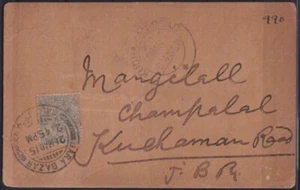 990
Mangilall
Champalal
Kuchaman Road
J. B Ry.
BAZAR
2.45 PM